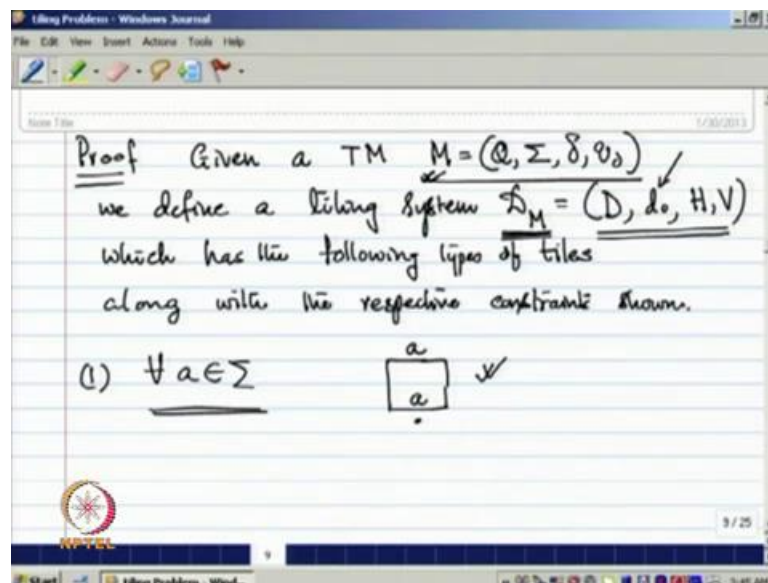 tiling Problem - Windows Journal
File Edit View Insert Actions Tools Help
Note Title
1/30/2013
Proof Given a TM M = (Q, Σ, δ, q₀)
we define a tiling system 𝒟_M = (D, d₀, H, V)
which has the following types of tiles
along with the respective constraints shown.
(1) ∀ a ∈ Σ
a
a
NPTEL
9 / 25
9
Start
tiling Problem - Wind...